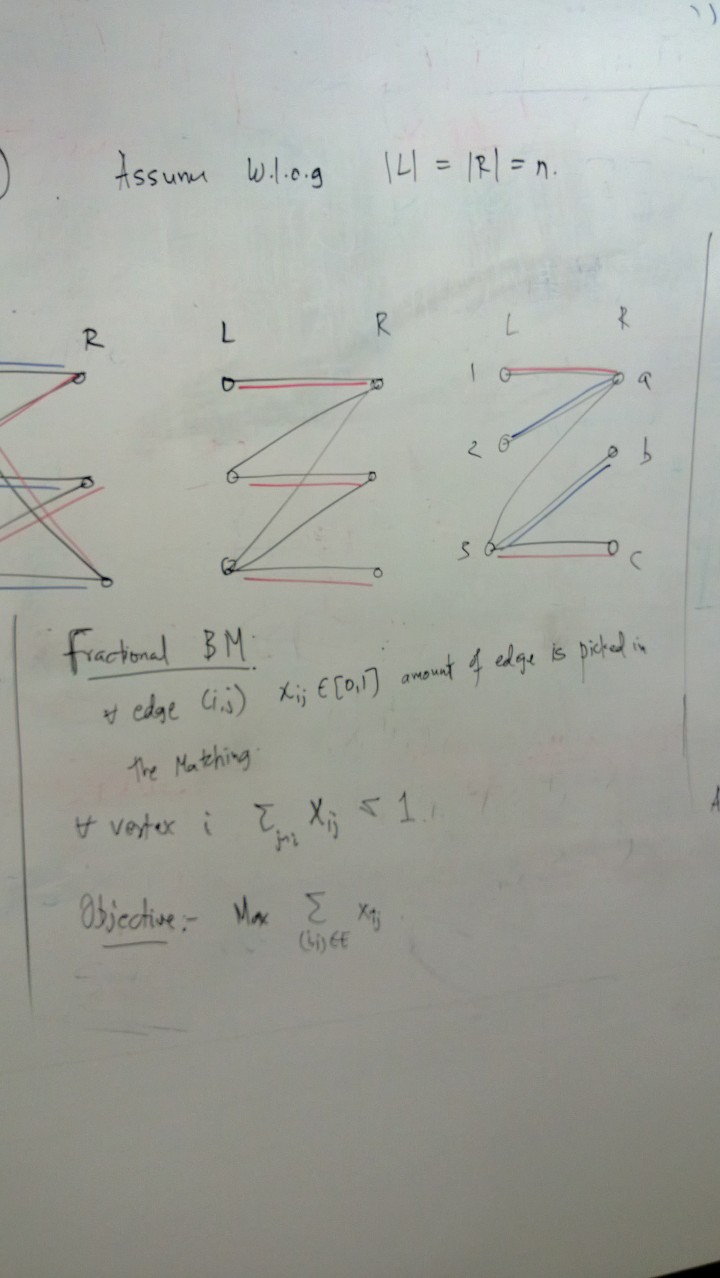 Assume W.l.o.g |L| = |R| = n.
R
L R
L R
1 a
2 b
3 c
Fractional BM:
∀ edge (i,j) x_ij ∈ [0,1] amount of edge is picked in
the Matching.
∀ vertex i Σ_j~i x_ij ≤ 1.
Objective:- Max Σ_(i,j)∈E x_ij